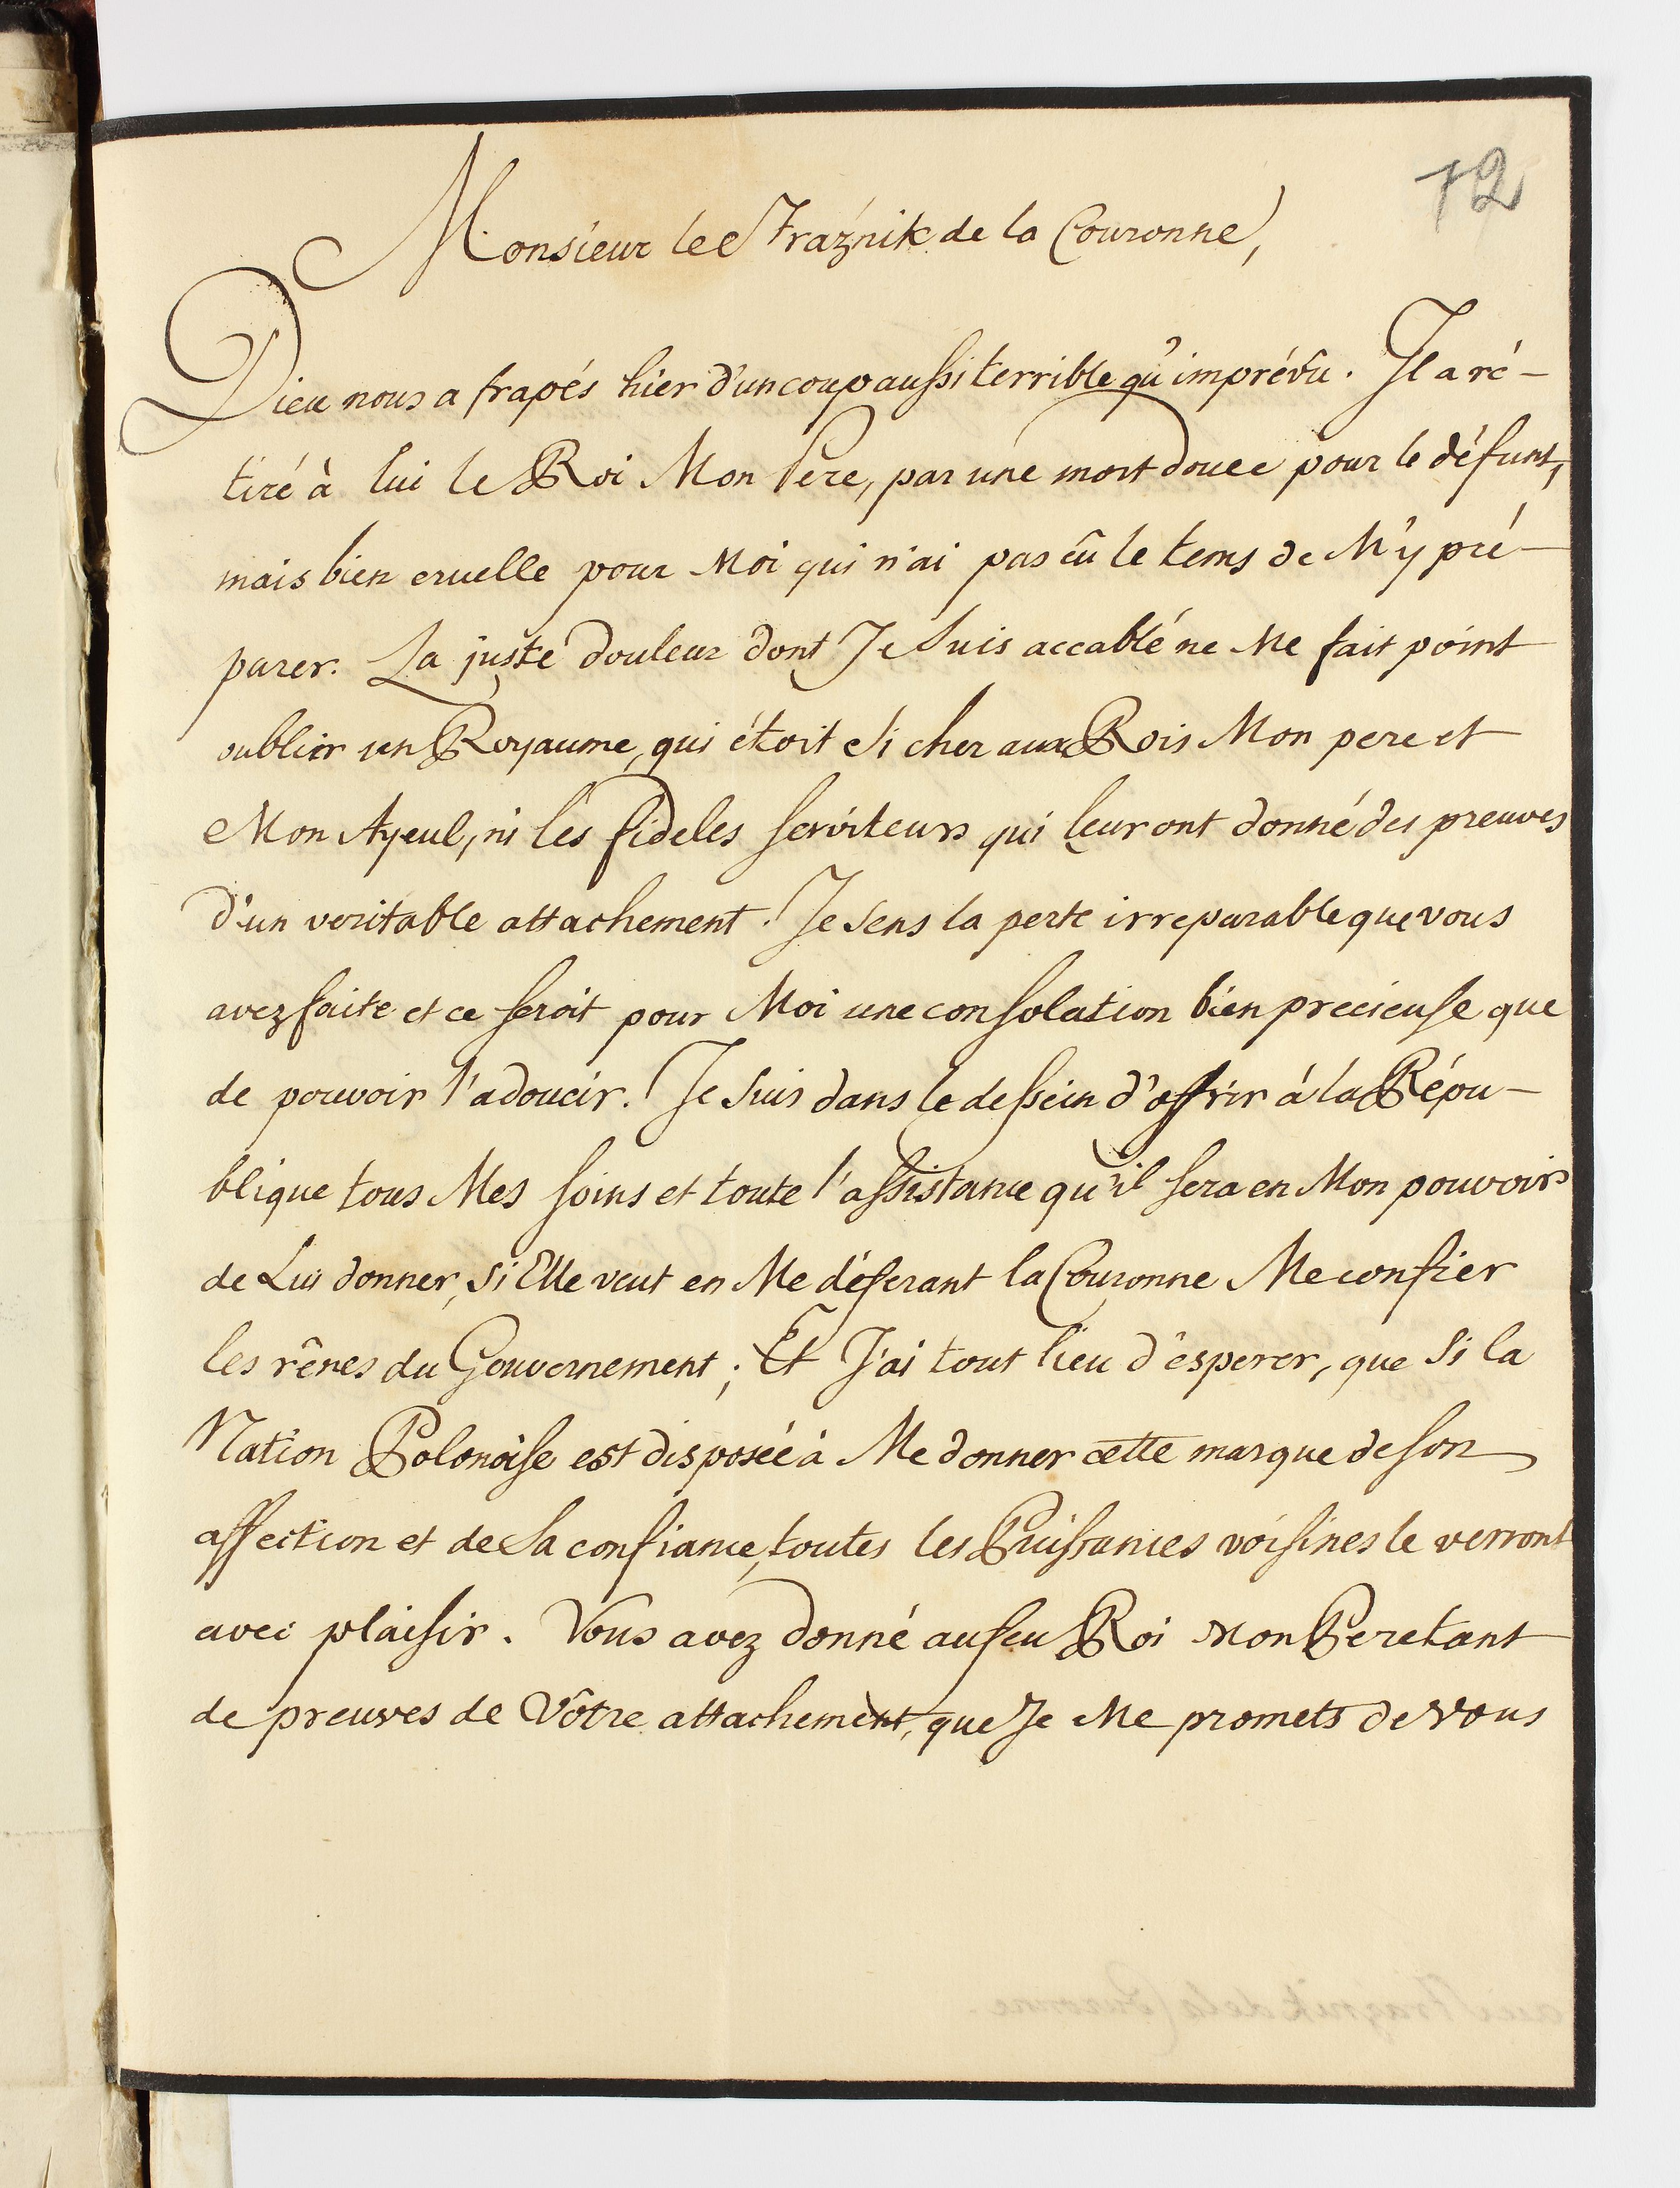 12
Monsieur le Straźnik de la Couronne,
Dieu nous a frapés hier d'un coup aussi terrible qu'imprévû. Il a ré-
tiré à lui le Roi Mon Pere, par une mort douce pour le défunt,
mais bien cruelle pour Moi qui n'ai pas eû le tems de M'y pré-
parer. La juste douleur dont Je Suis accablé ne Me fait point
oublier un Royaume, qui étoit Si cher aux Rois Mon pere et
Mon Ayeul, ni les fideles serviteurs qui leur ont donné des preuves
d'un veritable attachement. Je Sens la perte irreparable que vous
avez faite et ce seroit pour Moi une consolation bien precieuse que
de pouvoir l'adoucir. Je Suis dans le dessein d'offrir á la Répu-
blique tous Mes soins et toute l'assistance qu'il sera en Mon pouvoir
de Lui donner, Si Elle veut en Me déferant la Couronne Me confier
les rênes du Gouvernement; Et J'ai tout lieu d'ésperer, que Si la
Nation Polonoise est disposée à Me donner cette marque de son
affection et de Sa confiance, toutes les Puissances voisines le verront
avec plaisir. Vous avez donné au feu Roi Mon Pere tant
de preuves de Vôtre attachement, que Je Me promets de vous